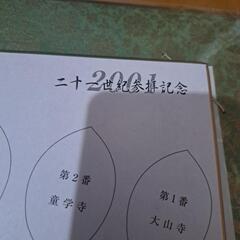 2001
二十一世紀参拝記念
第1番
大山寺
第2番
童学寺